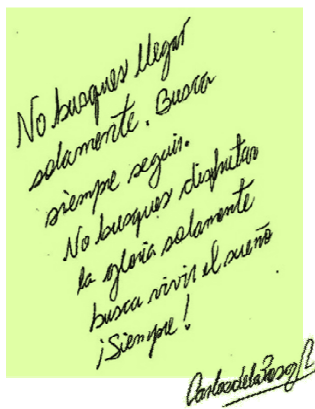 No busques llegar
solamente. Busca
siempre seguir.
No busques disfrutar
la gloria solamente
busca vivir el sueño
¡Siempre!